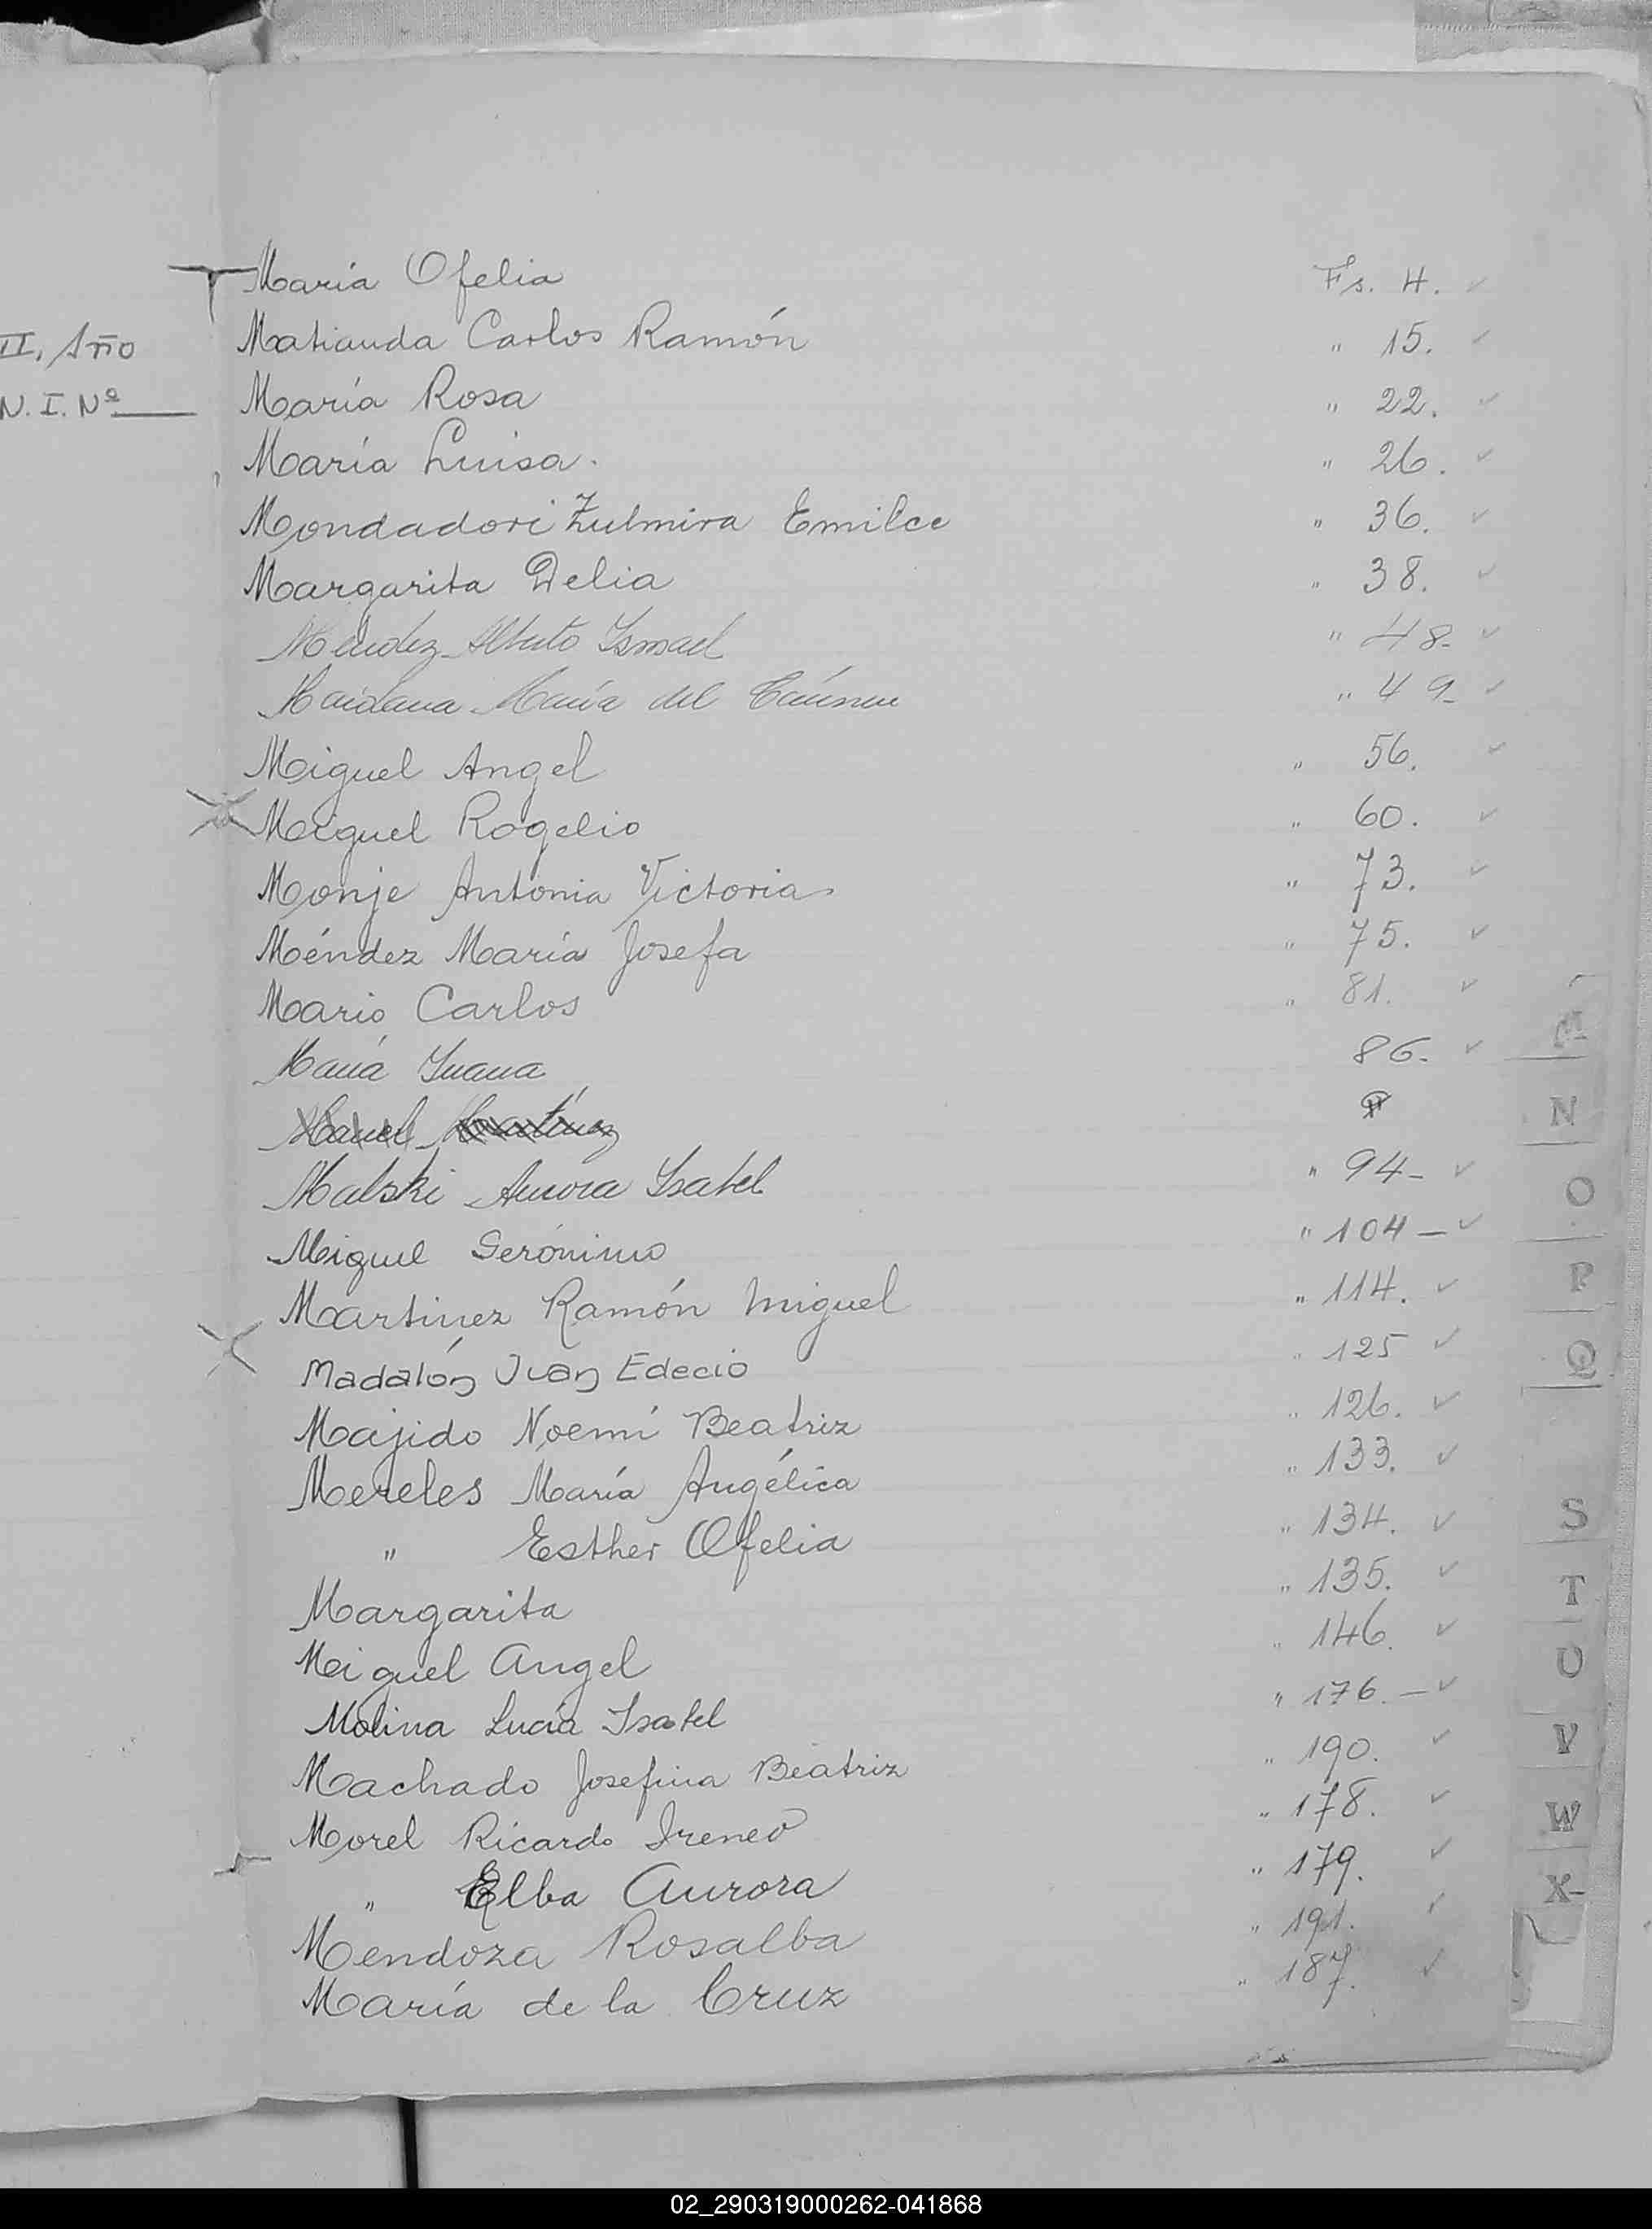 II, Año
N. I. Nº
María Ofelia Fs. 4.
Matianda Carlos Ramón " 15.
María Rosa " 22.
María Luisa. " 26.
Mondadori Zulmira Emilce " 36.
Margarita Delia " 38.
Méndez Alberto Ismael " 48-
Maidana María del Carmen " 49-
Miguel Angel " 56.
Miguel Rogelio " 60.
Monje Antonia Victoria " 73.
Méndez María Josefa " 75.
Mario Carlos " 81.
María Juana 86-
Martínez
Malski Aurora Isabel " 94-
Miguel Gerónimo " 104-
Martinez Ramón Miguel " 114.
Madalón Juan Edecio " 125
Majido Noemí Beatriz " 126.
Mereles María Angélica " 133.
" Esther Ofelia " 134.
Margarita " 135.
Miguel Angel " 146.
Molina Lucía Isabel " 176.-
Machado Josefina Beatriz " 190.
Morel Ricardo Ireneo " 178.
" Elba Aurora " 179.
Mendoza Rosalba " 191.
María de la Cruz " 187.
M
N
O
P
Q
S
T
U
V
W
X-
02_290319000262-041868